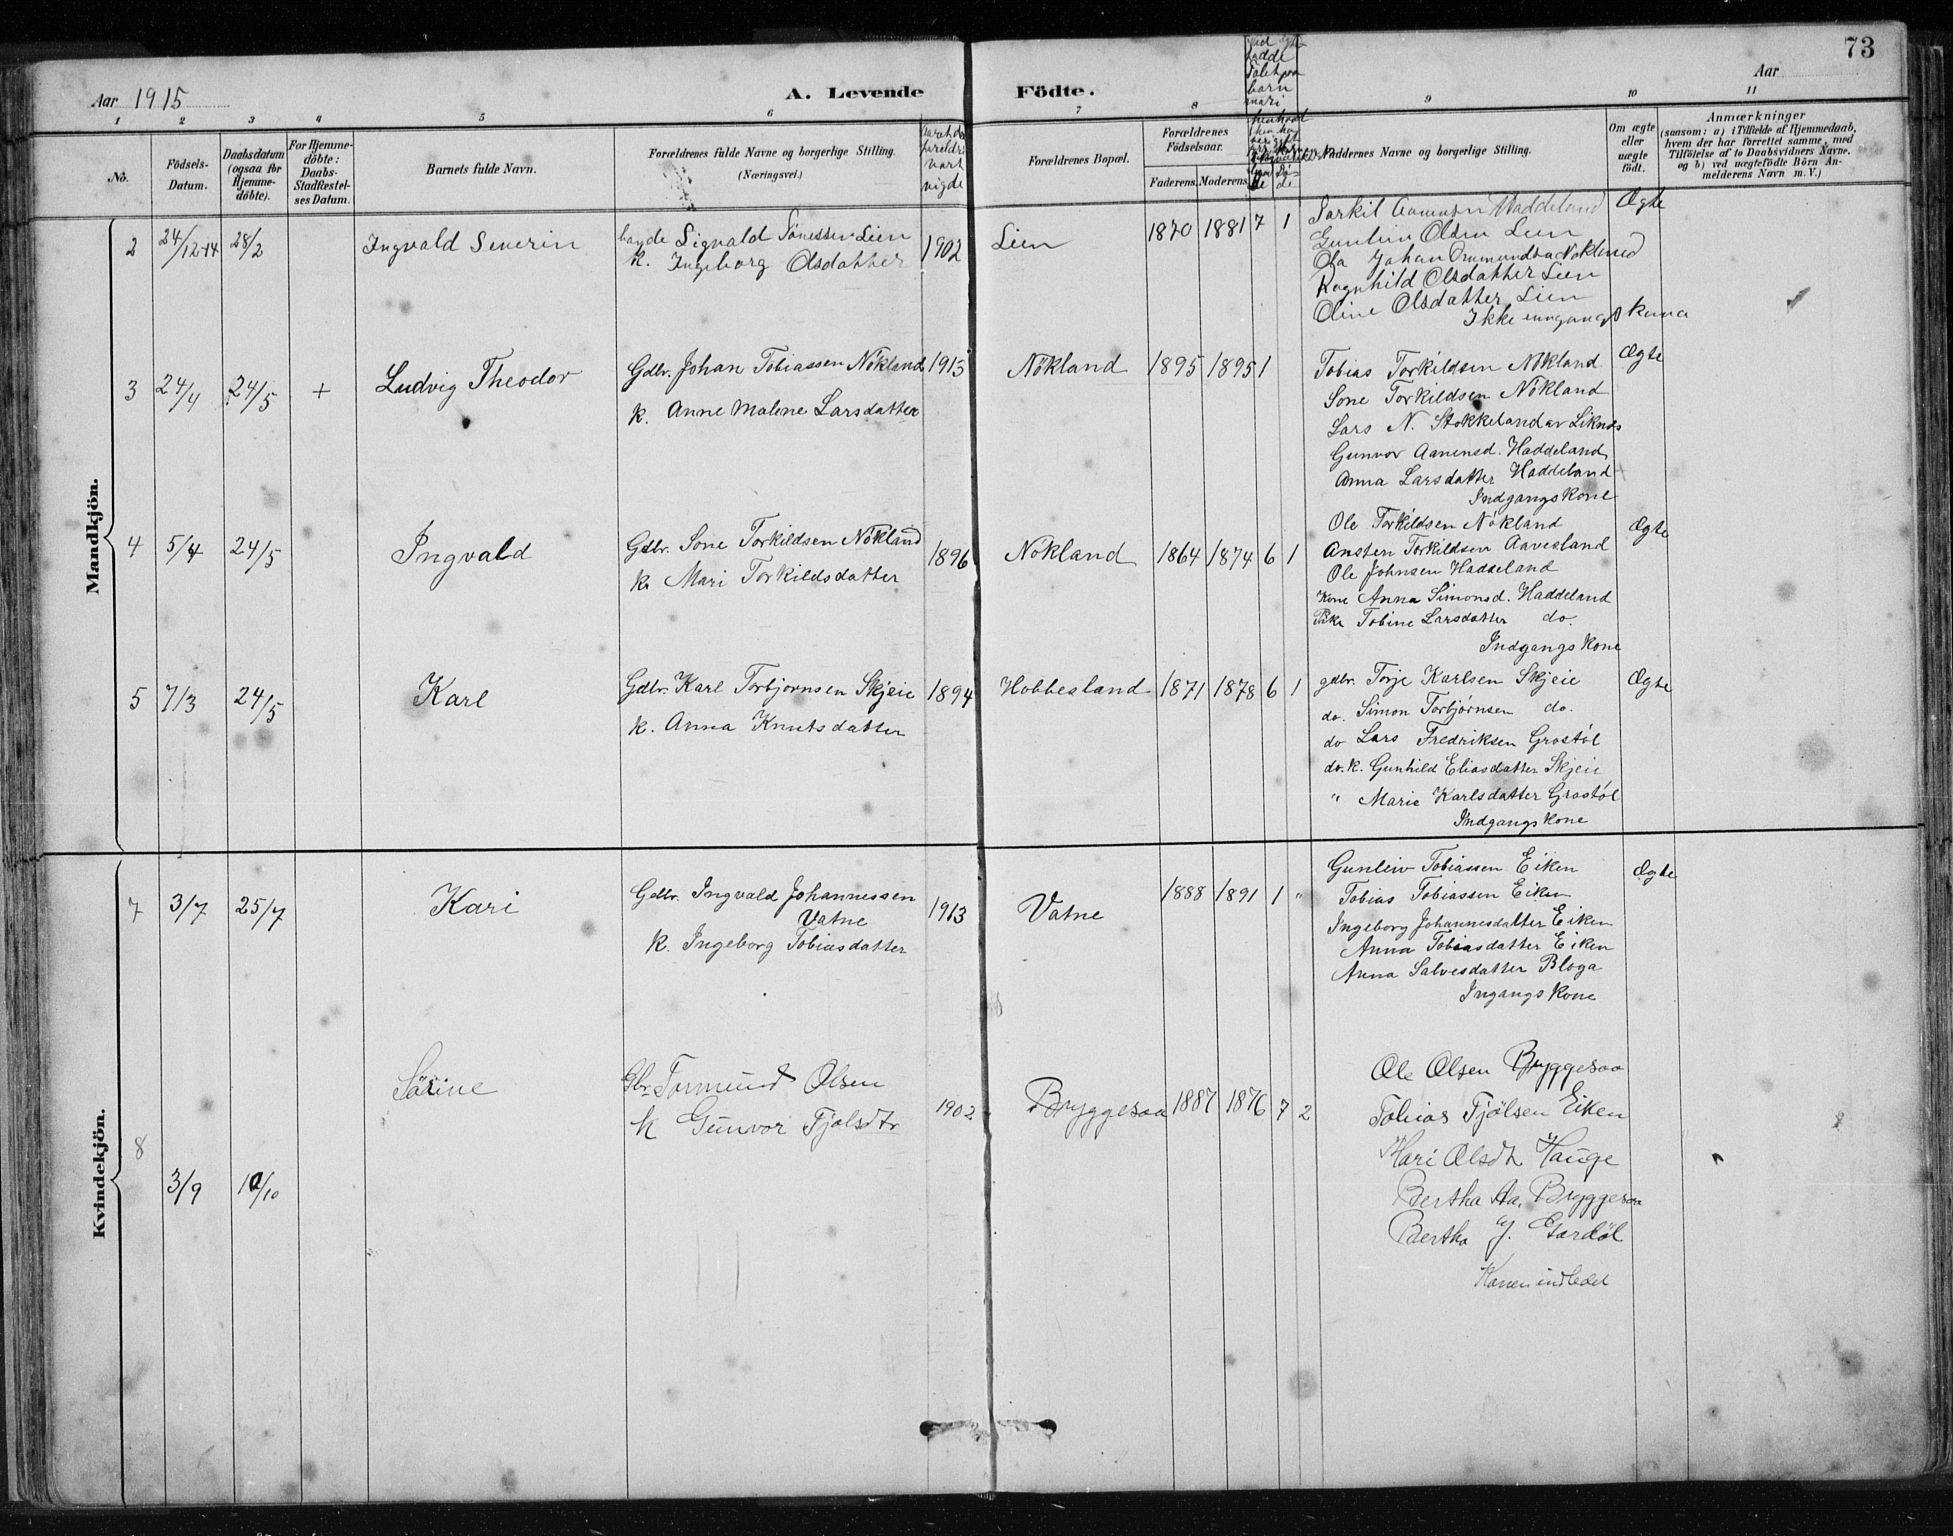 73
Aar 1915
A. Levende Födte.
Aar
1 2 3 4 5 6 7 8 9 10 11
No.
Födsels-Datum.
Daabsdatum (ogsaa for Hjemmedöbte).
For Hjemmedöbte: Daabs-Stadfæstelses Datum.
Barnets fulde Navn.
Forældrenes fulde Navne og borgerlige Stilling. (Næringsvei.)
Forældrenes Bopæl.
Forældrenes Födselsaar.
Faderens. Moderens.
Faddernes Navne og borgerlige Stilling.
Om ægte eller uægte födt.
Anmærkninger
(saasom: a) i Tilfælde af Hjemmedaab, hvem der har forrettet samme, med Tilföielse af to Daabsvidners Navne, og b) ved uægtefödte Börn Anmelderens Navn m. V.)
Mandkjön.
2 24/12-14 28/2 Ingvald Severin Sigvald Lien 1902 Lien 1870 1881 7 1 Haddeland Ægte
k. Ingeborg Olsdatter
Gunleiv Olsen Lien
Ola Johan
Ragnhild Olsdatter Lien
Oline Olsdatter Lien
Ikke kona
3 24/4 24/5 + Ludvig Theodor Gdbr. Johan Tobiassen Nökland 1913 Nökland 1895 1895 1 Tobias Torkildsen Nökland Ægte
k. Anne Malene Larsdatter
Sone Torkildsen Nökland
Lars N. Stokkeland av Liknes
Gunvor Aanensd. Haddeland
Anna Larsdatter Haddeland
Indgangskone
4 5/4 24/5 Ingvald Gdbr. Sone Torkildsen Nökland 1896 Nökland 1864 1874 6 1 Ole Torkildsen Nökland Ægte
k. Mari Torkildsdatter
Ansten Torkildsen Aavesland
Ole Johnsen Haddeland
Kone Anna Simonsd. Haddeland
Pike Tobine Larsdatter do.
Indgangskone
5 7/3 24/5 Karl Gdbr. Karl Torbjörnsen Skjeie 1894 Hobbesland 1871 1878 6 1 gdbr. Torje Karlsen Skjeie Ægte
k. Anna Knutsdatter
do. Simon Torbjörnsen do.
do Lars Fredriksen Grostöl
do. k. Gunhild Eliasdatter Skjeie
" Marie Karlsdatter Grostöl
Indgangskone
Kvindekjön.
7 3/7 25/7 Kari Gdbr. Ingvald Johannessen Vatne 1913 Vatne 1888 1891 1 " Gunleiv Tobiassen Eiken Ægte
k. Ingeborg Tobiasdatter
Tobias Tobiassen Eiken
Ingeborg Johannesdatter Eiken
Anna Tobiasdatter Eiken
Anna Salvesdatter Bloga
Ingangskone
8 3/9 10/10 Sörine Gbr. Tormund Olsen 1902 Bryggesaa 1887 1876 7 2 Ole Olsen Bryggesaa
k Gunvor Tjölsdtr
Tobias Tjölsen Eiken
Mari Olsdtr Hauge
Bertha Aa. Bryggesaa
Bertha G. Gardöl
Konen indledet